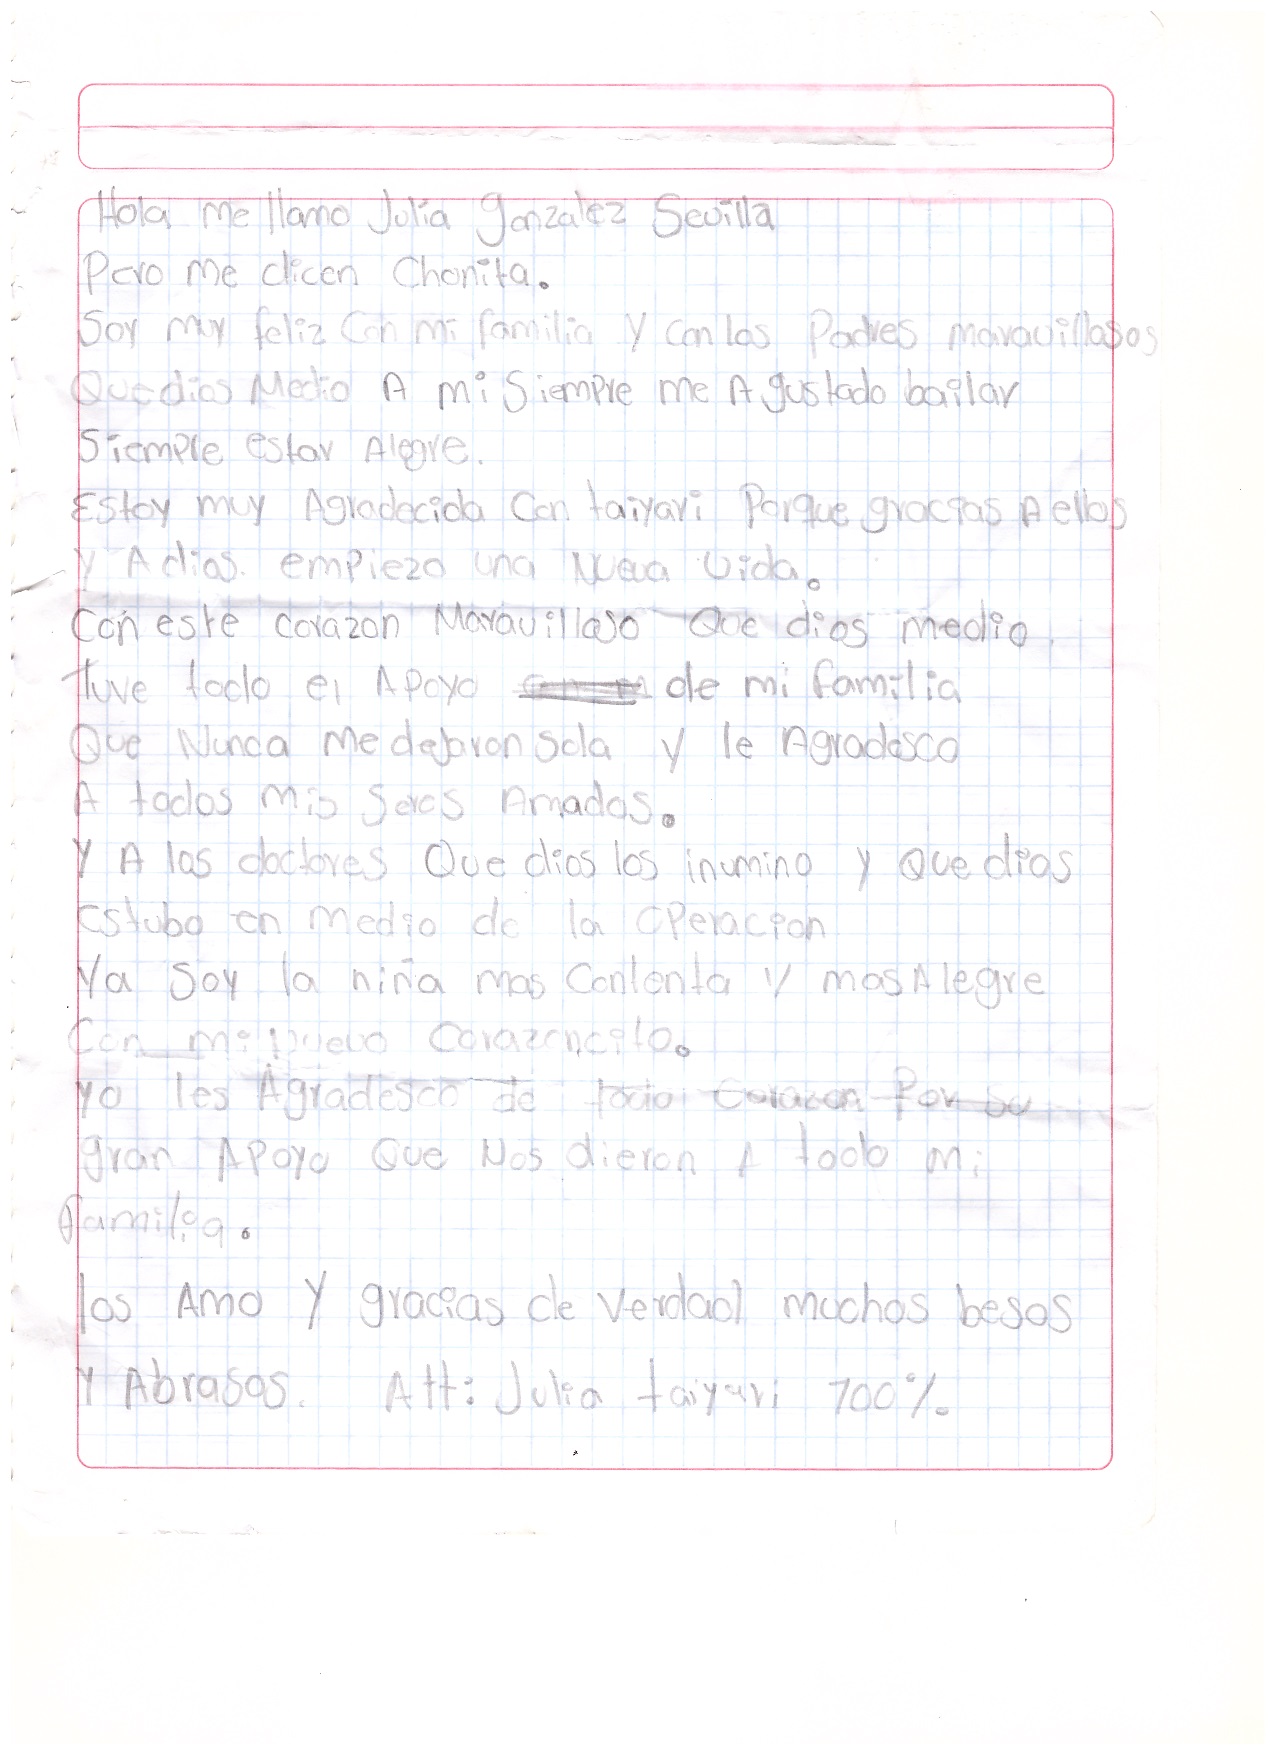 Hola me llamo Julia gonzalez Sevilla
Pero me dicen Chonita.
Soy muy feliz Con mi familia y con los Padres maravillosos
Que dios Medio A mi Siempre me A gustado bailar
Siemple estar Alegre.
Estoy muy Agradecida Con taiyari Porque gracias A ellos
y A dios. empiezo una Nueva vida.
Con este corazon Maravilloso Que dios medio.
Tuve todo el Apoyo de mi familia
Que Nunca me dejaron Sola y le Agradesco
A todos mis Seres Amados.
Y A los doctores Que dios los inumino y Que dios
Estubo en medio de la OPeracion
Ya Soy la niña mas Contenta y mas Alegre
Con mi nuevo Corazoncito.
yo les Agradesco de todo Corazon Por su
gran APoyo Que Nos dieron A todo mi
familia.
los Amo Y gracias de Verdad muchos besos
Y Abrasos. Att: Julia taiyari 100%.